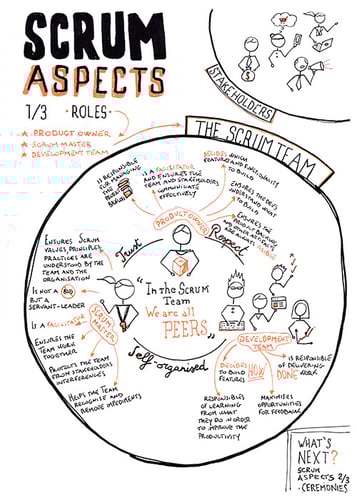 SCRUM
ASPECTS
1/3 · ROLES ·
★ PRODUCT OWNER
★ SCRUM MASTER
★ DEVELOPMENT TEAM
STAKEHOLDERS
THE SCRUM TEAM
IS RESPONSIBLE
FOR MANAGING
THE
PRODUCT
BACKLOG
IS A FACILITATOR
AND ENSURES THE
TEAM AND STAKEHOLDERS
COMMUNICATE
EFFECTIVELY
DECIDES WHICH
FEATURES AND FUNCTIONALITY
TO BUILD
ENSURES THE DEVS
UNDERSTAND WHAT
TO BUILD
ENSURES THE
PRODUCT BACKLOG
AND OTHER ARTEFACTS
ARE ALWAYS VISIBLE
PRODUCT OWNER
Trust
Respect
ENSURES SCRUM
VALUES, PRINCIPLES,
PRACTICES ARE
UNDERSTOOD BY THE
TEAM AND THE
ORGANISATION
IS NOT A
BUT A
SERVANT-LEADER
IS A FACILITATOR
ENSURES THE
TEAM WORK
TOGETHER
PROTECTS THE TEAM
FROM STAKEHOLDERS
INTERFERENCES
HELPS THE TEAM
RECOGNISE AND
REMOVE IMPEDIMENTS
SCRUM
MASTER
"In the SCRUM
Team
We are all
PEERS"
Self-organised
DEVELOPMENT
TEAM
DECIDES HOW
TO BUILD
FEATURES
IS RESPONSIBLE
OF DELIVERING
DONE WORK
RESPONSIBLES
OF LEARNING
FROM WHAT
THEY DO IN ORDER
TO IMPROVE THE
PRODUCTIVITY
MAXIMISES
OPPORTUNITIES
FOR FEEDBACK
WHAT'S
NEXT?
SCRUM
ASPECTS 2/3
· CEREMONIES